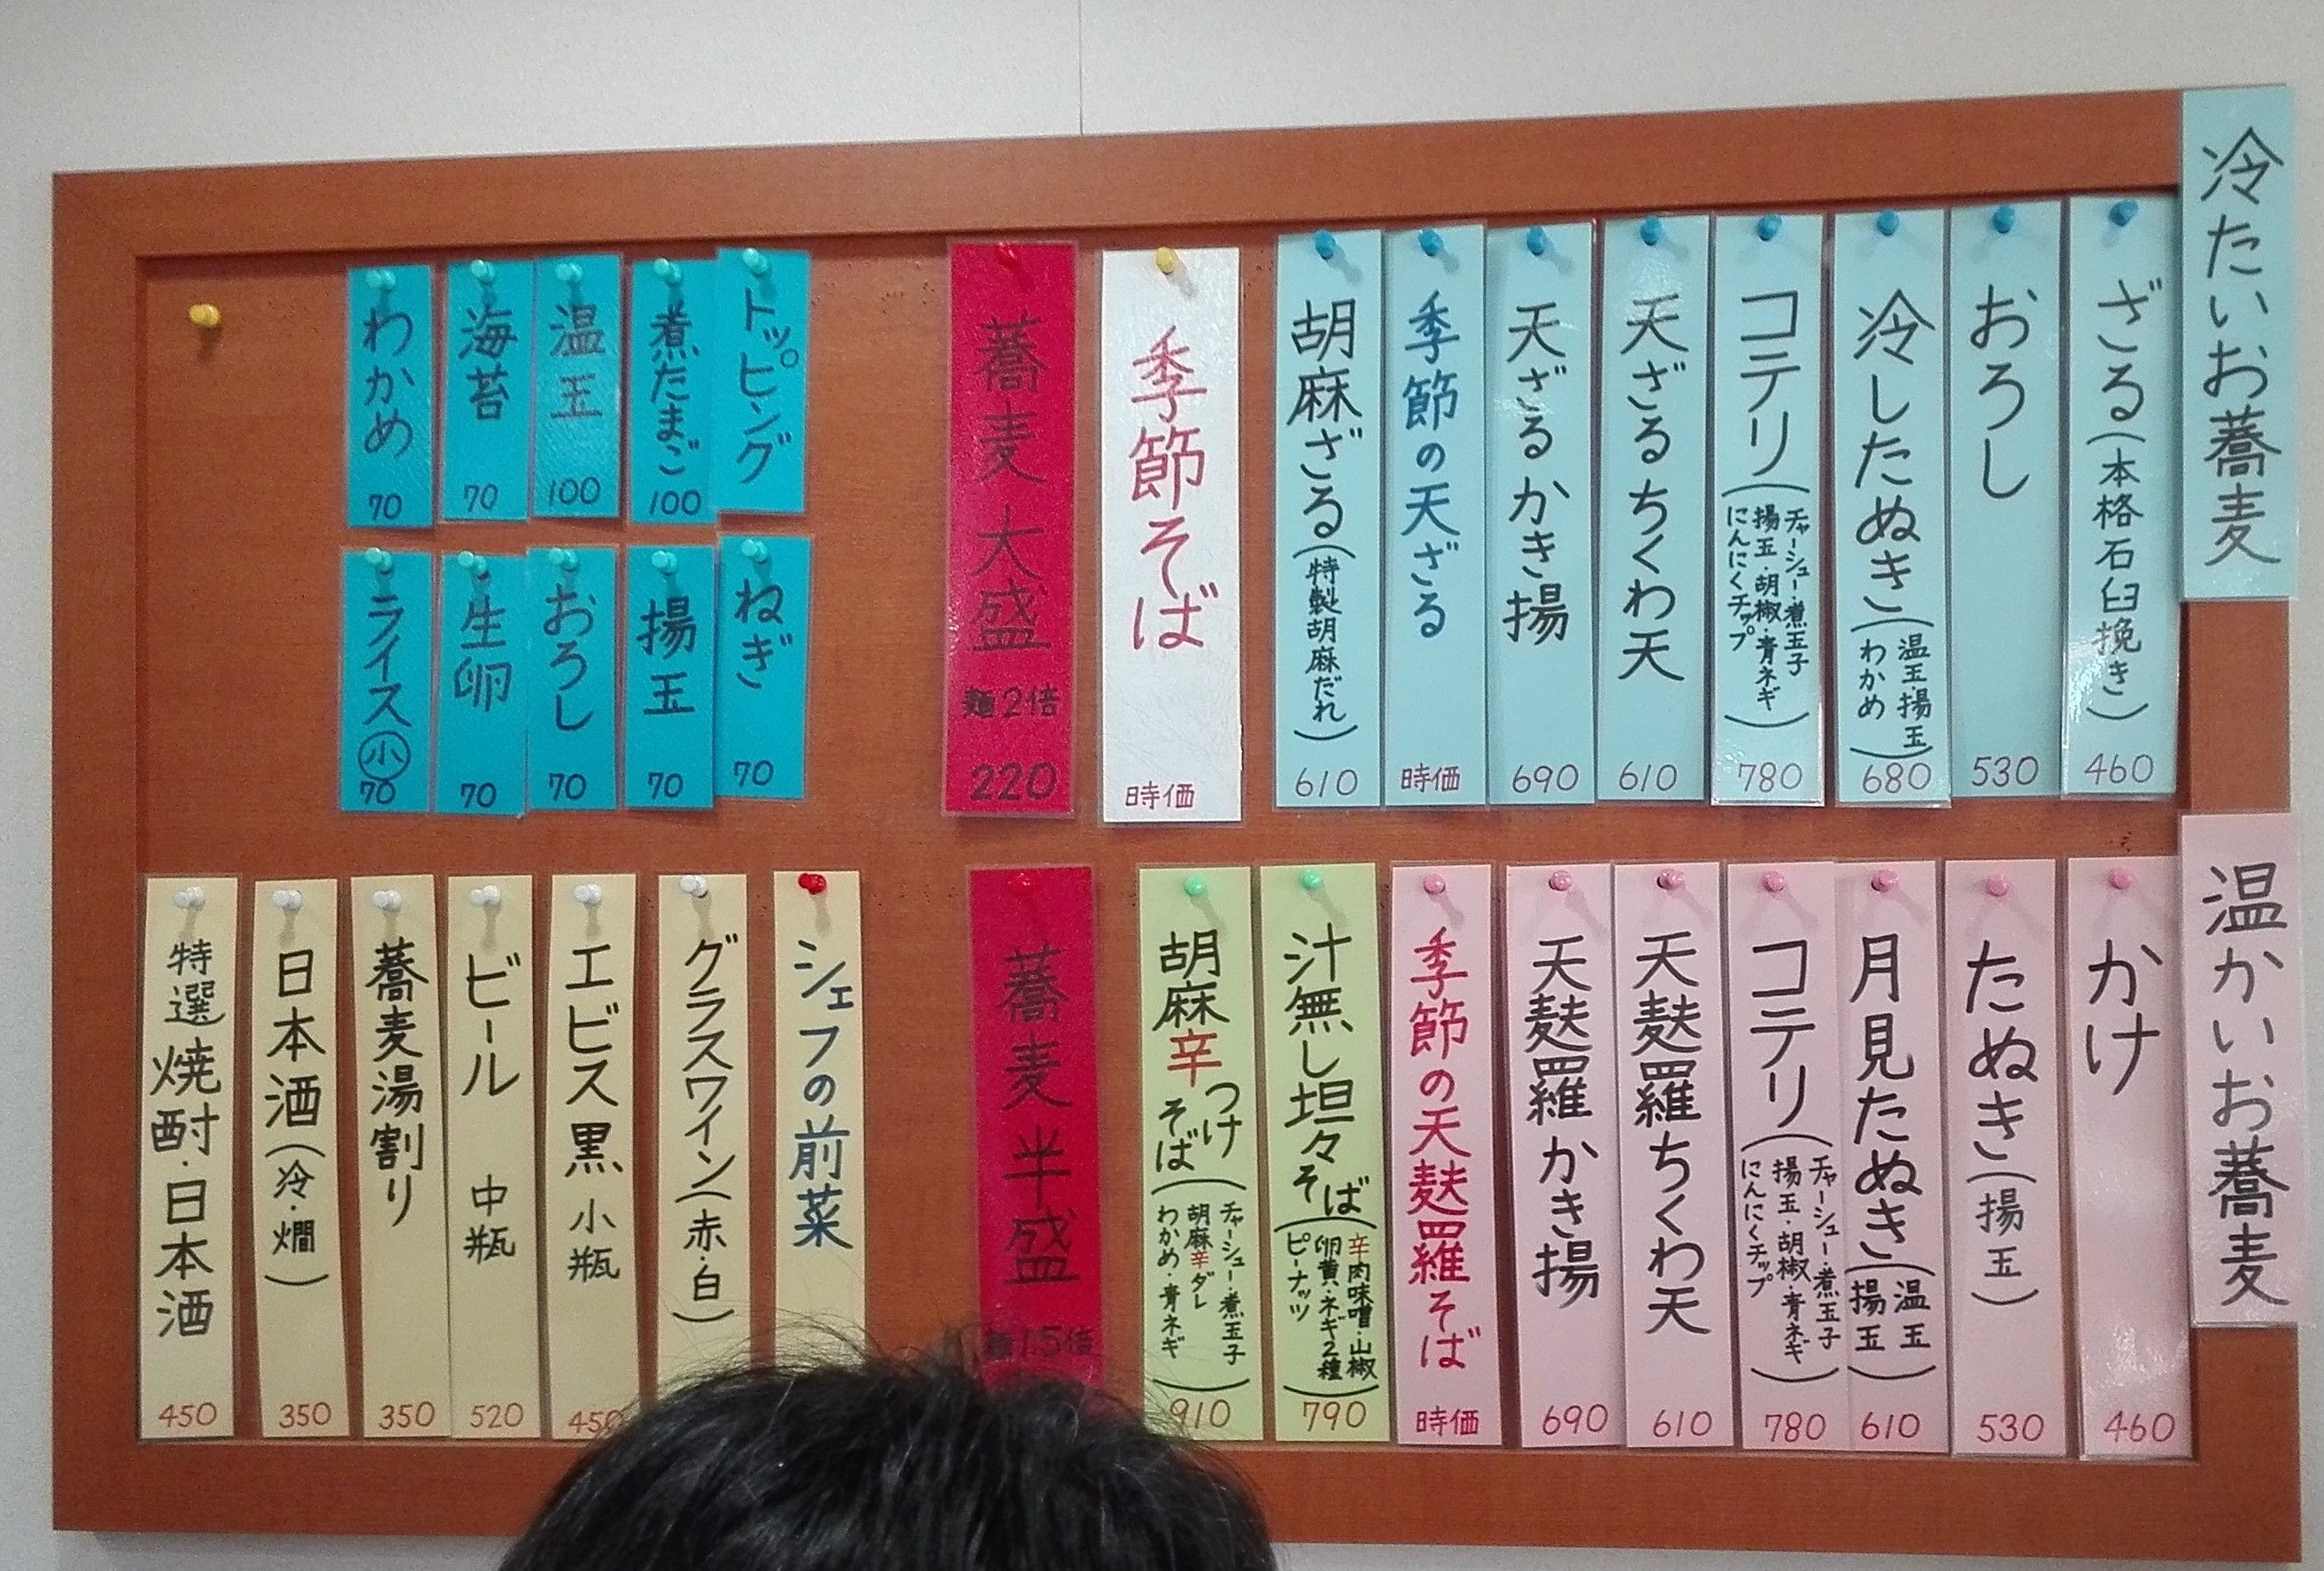 冷たいお蕎麦
ざる(本格石臼挽き)
460
おろし
530
冷したぬき(温玉・揚玉
わかめ)
680
コテリ(チャーシュー・煮玉子
揚玉・胡椒・青ネギ
にんにくチップ)
780
天ざるちくわ天
610
天ざるかき揚
690
季節の天ざる
時価
胡麻ざる(特製胡麻だれ)
610
季節そば
時価
蕎麦大盛
麺2倍
220
トッピング
煮たまご
100
温玉
100
海苔
70
わかめ
70
ねぎ
70
揚玉
70
おろし
70
生卵
70
ライス小
70
温かいお蕎麦
かけ
460
たぬき(揚玉)
530
月見たぬき(温玉
揚玉)
610
コテリ(チャーシュー・煮玉子
揚玉・胡椒・青ネギ
にんにくチップ)
780
天麩羅ちくわ天
610
天麩羅かき揚
690
季節の天麩羅そば
時価
汁無し坦々そば(辛肉味噌・山椒
卵黄・ネギ2種
ピーナッツ)
790
胡麻辛つけ
そば(チャーシュー・煮玉子
胡麻辛ダレ
わかめ・青ネギ)
910
蕎麦半盛
麺1.5倍
シェフの前菜
グラスワイン(赤・白)
エビス黒 小瓶
450
ビール 中瓶
520
蕎麦湯割り
350
日本酒(冷・燗)
350
特選焼酎・日本酒
450